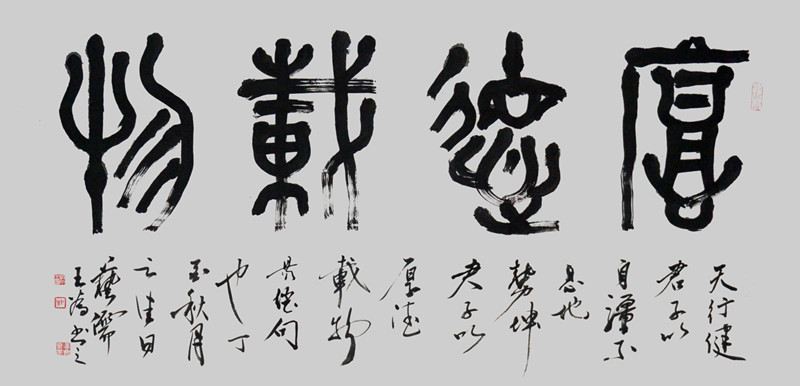 厚德載物
天行健
君子以
自彊不
息地
勢坤
君子以
厚德
載物
句
也丁
秋月
之佳日
王書之